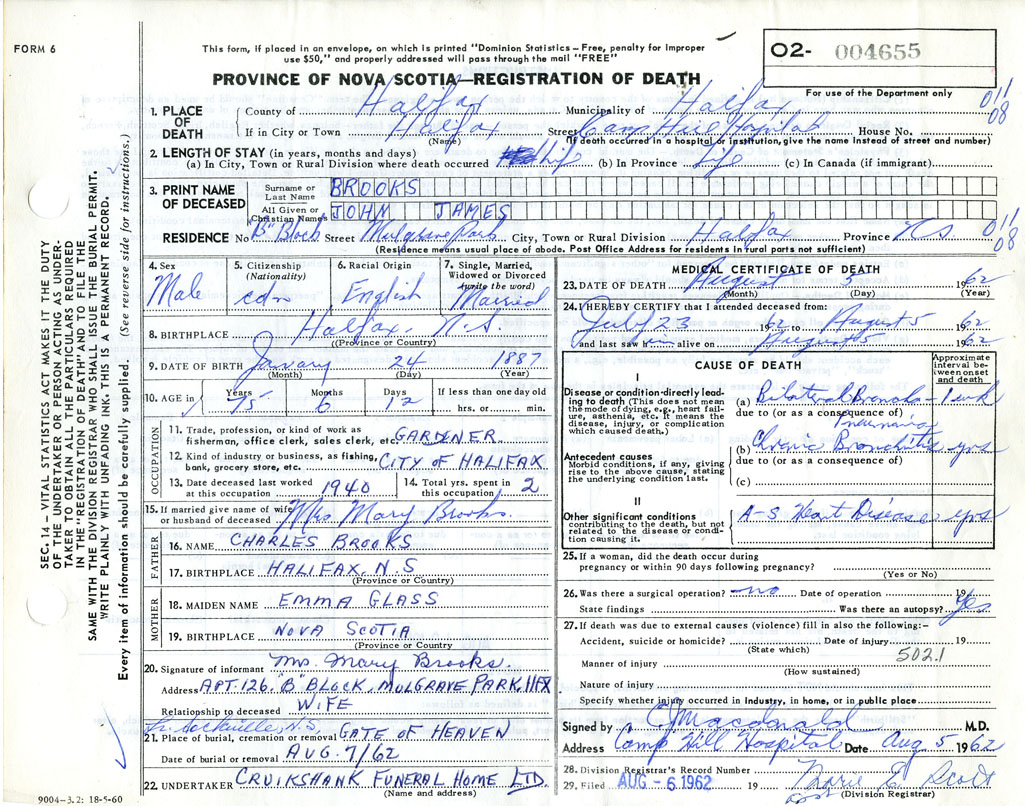 FORM 6
This form, if placed in an envelope, on which is printed "Dominion Statistics – Free, penalty for improper
use $50," and properly addressed will pass through the mail "FREE"
O2- 004655
For use of the Department only
PROVINCE OF NOVA SCOTIA—REGISTRATION OF DEATH
SEC. 14 – VITAL STATISTICS ACT MAKES IT THE DUTY
OF THE UNDERTAKER OR PERSON ACTING AS UNDER-
TAKER TO OBTAIN ALL THE PARTICULARS REQUIRED
IN THE "REGISTRATION OF DEATH" AND TO FILE THE
SAME WITH THE DIVISION REGISTRAR WHO SHALL ISSUE THE BURIAL PERMIT.
WRITE PLAINLY WITH UNFADING INK. THIS IS A PERMANENT RECORD.
Every item of information should be carefully supplied. (See reverse side for instructions.)
1. PLACE OF DEATH
County of Halifax Municipality of Halifax 011 08
If in City or Town Halifax Street Camp Hill Hospital House No.
(Name) (If death occurred in a hospital or institution, give name instead of street and number)
2. LENGTH OF STAY (in years, months and days)
(a) In City, Town or Rural Division where death occurred life (b) In Province Life (c) In Canada (if immigrant)
3. PRINT NAME OF DECEASED
Surname or Last Name BROOKS
All Given or Christian Names JOHN JAMES
RESIDENCE No "B" Block Street Mulgrave Park City, Town or Rural Division Halifax Province N.S. 011 08
(Residence means usual place of abode. Post Office Address for residents in rural parts not sufficient)
4. Sex Male
5. Citizenship (Nationality) cdn
6. Racial Origin English
7. Single, Married, Widowed or Divorced (write the word) Married
8. BIRTHPLACE Halifax, N.S.
(Province or Country)
9. DATE OF BIRTH January 24 1887
(Month) (Day) (Year)
10. AGE in Years 75 Months 6 Days 12 If less than one day old hrs. or min.
OCCUPATION
11. Trade, profession, or kind of work as
fisherman, office clerk, sales clerk, etc. GARDNER
12. Kind of industry or business, as fishing,
bank, grocery store, etc. CITY OF HALIFAX
13. Date deceased last worked at this occupation 1940
14. Total yrs. spent in this occupation 2
15. If married give name of wife
or husband of deceased Mrs Mary Brooks.
FATHER
16. NAME CHARLES BROOKS
17. BIRTHPLACE HALIFAX, N.S
(Province or Country)
MOTHER
18. MAIDEN NAME EMMA GLASS
19. BIRTHPLACE NOVA SCOTIA
(Province or Country)
20. Signature of informant Mrs. Mary Brooks.
Address APT. 126, "B" BLOCK, MULGRAVE PARK, HFX
Relationship to deceased WIFE
Lr. Sackville, N.S.
21. Place of burial, cremation or removal GATE OF HEAVEN
Date of burial or removal AUG. 7/62
22. UNDERTAKER CRUIKSHANK FUNERAL HOME LTD.
(Name and address)
9004–3.2: 18-5-60
MEDICAL CERTIFICATE OF DEATH
23. DATE OF DEATH August 5 1962
(Month) (Day) (Year)
24. I HEREBY CERTIFY that I attended deceased from:
July 23 1962 to August 5 1962
and last saw him alive on August 5 1962
CAUSE OF DEATH
Approximate interval between onset and death
I
Disease or condition directly leading to death (This does not mean
the mode of dying, e.g., heart failure, asthenia, etc. It means the
disease, injury, or complication which caused death.)
(a) Bilateral Broncho- Pneumonia 1 wk
due to (or as a consequence of)
Antecedent causes
Morbid conditions, if any, giving
rise to the above cause, stating
the underlying condition last.
(b) Chronic Bronchitis yrs
due to (or as a consequence of)
(c)
II
Other significant conditions
contributing to the death, but not
related to the disease or condition causing it.
A-S Heart Disease yrs
25. If a woman, did the death occur during
pregnancy or within 90 days following pregnancy?
(Yes or No)
26. Was there a surgical operation? no Date of operation 19
State findings Was there an autopsy? Yes
27. If death was due to external causes (violence) fill in also the following:–
Accident, suicide or homicide? Date of injury 19
(State which) 502.1
Manner of injury
(How sustained)
Nature of injury
Specify whether injury occurred in industry, in home, or in public place
Signed by C J Macdonald M.D.
Address Camp Hill Hospital Date Aug 5 1962
28. Division Registrar's Record Number
29. Filed AUG - 6 1962 19 Marie E. Scott
(Division Registrar)